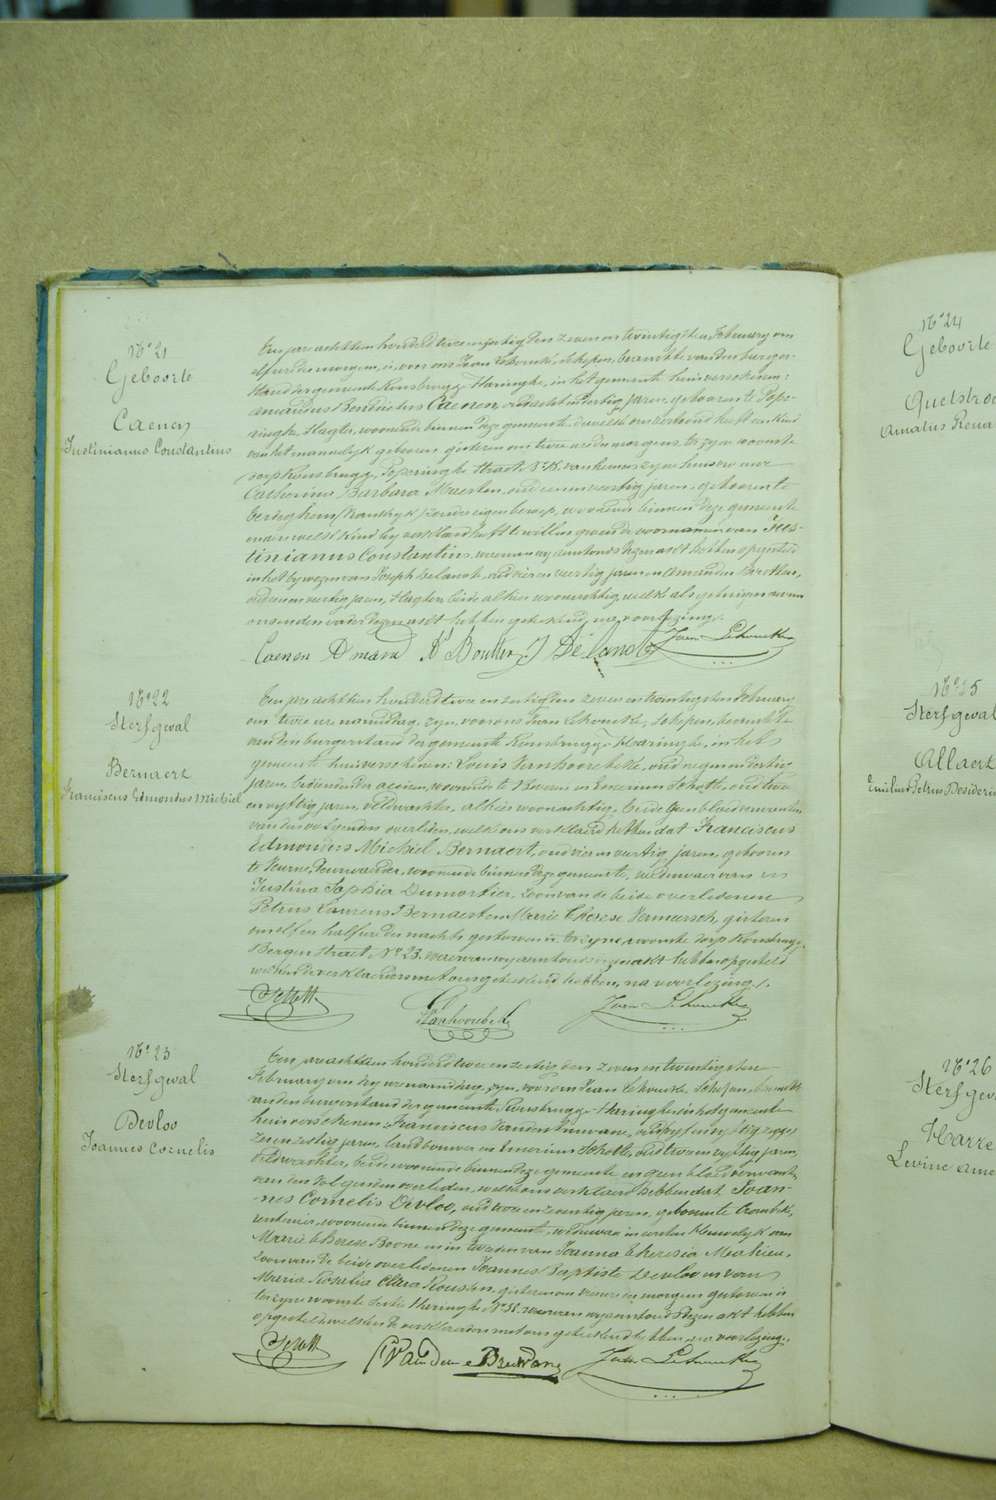 N° 21
Geboorte
Caenen
Justinianus Constantinus
Een jaer achttien honderd twee en zestig den zeven en twintigsten February om
elf ure des morgens, is, voor ons Joan Lehoucke, schepen, beambte van den burger-
stand der gemeente Rousbrugge-Haringhe, in het gemeente huis verschenen:
Amandus Benedictus Caenen, oud acht en dertig jaren, geboren te Pope-
ringhe, woonende binnen deze gemeente, dewelke ons verklaerd heeft een kind
van het mannelijk geboren gisteren om twee ure des morgens te zyne woonste
dorp Rousbrugge, Poperinghe straet N° 18, van hem en zyne huisvrouwe
Catherina Barbara Maerten, oud een en veertig jaren, geboren te
(Frankryk) zonder eigen beroep, woonende binnen deze gemeente
onder welk kind hy verklaerd heeft te willen geven de voornamen van Jus-
tinianus Constantinus, waervan wy aenstonds dezen akt hebben opgesteld
in het bywezen van Joseph Delanote, oud vier en veertig jaren en Amandus
oud en veertig jaren, beide alhier woonachtig, welke als getuigen
ons en den vader dezen akt hebben geteekend, na voorlezing.
Caenen Amand Delanote Joan Lehoucke
N° 22
Sterfgeval
Bernaert
Franciscus Edmondus Michiel
Een jaer achttien honderd twee en zestig den zeven en twintigsten February
om twee ure namiddag, zyn, voor ons Joan Lehoucke, schepen, beambte
van den burgerstand der gemeente Rousbrugge-Haringhe, in het
gemeente huis verschenen: Louis Vanhoorebeke, oud negen en dertig
jaren, bediende der accisen, woonende te Beveren en Emerinus Schotte, oud twee
en vyftig jaren, veldwachter, alhier woonachtig, beide geen bloedverwanten
van den volgenden overleden, welke ons verklaerd hebben dat Franciscus
Edmondus Michiel Bernaert, oud vier en veertig jaren, geboren
te Veurne, woonende binnen deze gemeente, weduwaer van
Justina Sophia Dumortier, zoon van de beide overledenen
Petrus Laurens Bernaert en Marie Therese Vermeersch, gisteren
om elf en half ure des nachts gestorven is te zyne woonste dorp Rousbrugge,
Bergen straet, N° 23. waervan wy aenstonds dezen akt hebben opgesteld
welken de verklaerders met ons geteekend hebben, na voorlezing.
Schotte Vanhoorebeke Joan Lehoucke
N° 23
Sterfgeval
Devloo
Joannes Cornelis
Een jaer achttien honderd twee en zestig den zeven en twintigsten
February om dry ure namiddag, zyn, voor ons Joan Lehoucke, schepen, beambte
van den burgerstand der gemeente Rousbrugge-Haringhe in het gemeente
huis verschenen: Franciscus Vanden
zes en zestig jaren, landbouwer en Emerinus Schotte, oud twee en vyftig jaren,
veldwachter, beide woonende binnen deze gemeente en geen bloedverwanten
van den volgenden overleden, welke ons verklaerd hebben dat Joan-
nes Cornelis Devloo, oud twee en zeventig jaren, geboren te Crombeke,
rentenier, woonende binnen deze gemeente, weduwaer in eersten huwelyk van
Marie Therese Boone en in tweeden van Joanna Theresia Mahieu,
zoon van de beide overledenen Joannes Baptiste Devloo en van
Maria Rosalia Clara Rousten, gisteren om ure des morgens gestorven is
te zyne woonste sectie Haringhe N° waervan wy aenstonds dezen akt hebben
opgesteld welken de verklaerders met ons geteekend hebben, na voorlezing.
Schotte Joan Lehoucke
N° 24
Geboorte
Amatus Rena
N° 25
Sterfgeval
Allaert
Emilius Petrus Desideriu
N° 26
Sterfgev
Harre
Levine Ame